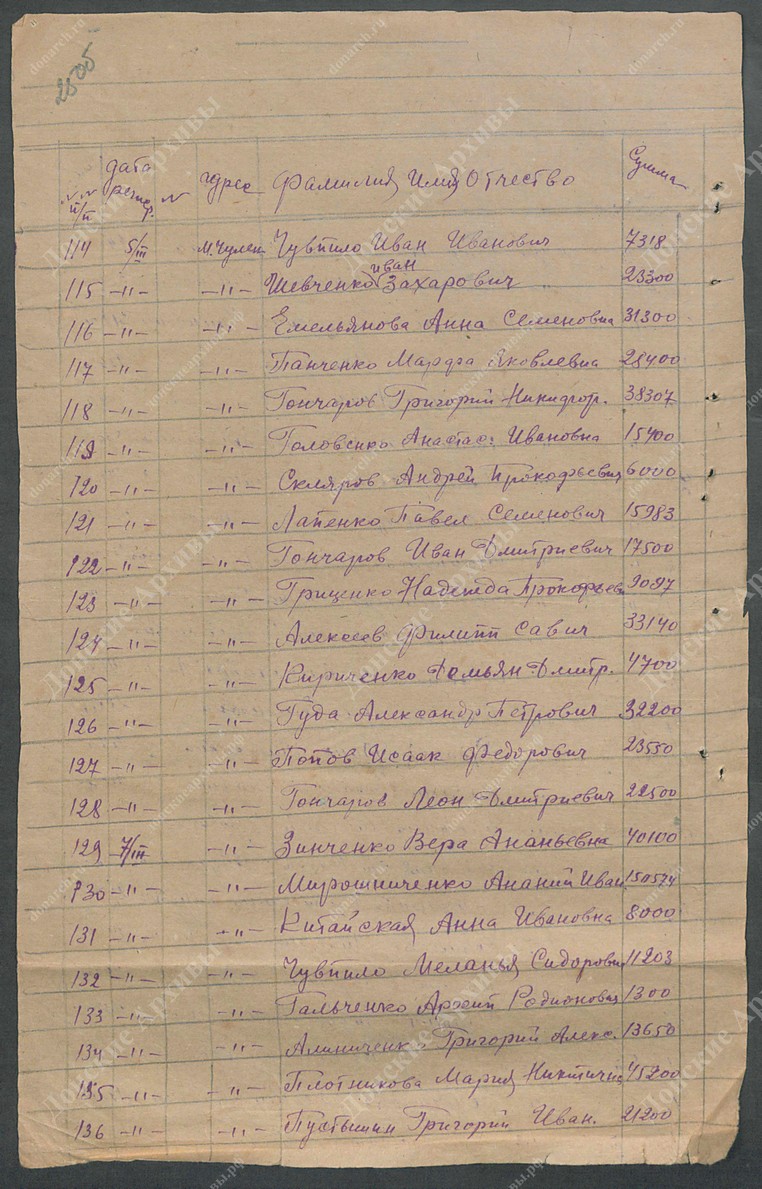 2505
№№ п/п дата регистр. № адрес Фамилия Имя Отчество Сумма
114 5/III М. Чулек Чувпило Иван Иванович 7318
115 -"- -"- Шевченко Иван Захарович 23300
116 -"- -"- Емельянова Анна Семеновна 31300
117 -"- -"- Панченко Марфа Яковлевна 28400
118 -"- -"- Гончаров Григорий Никифор. 38307
119 -"- -"- Головенко Анастас. Ивановна 15400
120 -"- -"- Скляров Андрей Прокофьевич 6000
121 -"- -"- Лапенко Павел Семенович 15983
122 -"- -"- Гончаров Иван Дмитриевич 17500
123 -"- -"- Гриценко Надежда Прокофьев 9097
124 -"- -"- Алексеев Филипп Савич 33140
125 -"- -"- Кириченко Демьян Дмитр. 4700
126 -"- -"- Гуда Александр Петрович 32200
127 -"- -"- Попов Исаак Федорович 23550
128 -"- -"- Гончаров Леон Дмитриевич 22500
129 7/III -"- Зинченко Вера Ананьевна 40100
130 -"- -"- Мирошниченко Ананий Иван 150574
131 -"- -"- Китайская Анна Ивановна 8000
132 -"- -"- Чувпило Меланья Сидоровн 11203
133 -"- -"- Гальченко Арсений Родионович 1300
134 -"- -"- Алиниченко Григорий Алекс. 13650
135 -"- -"- Плотникова Мария Никитична 45200
136 -"- -"- Пустынин Григорий Иван. 21200